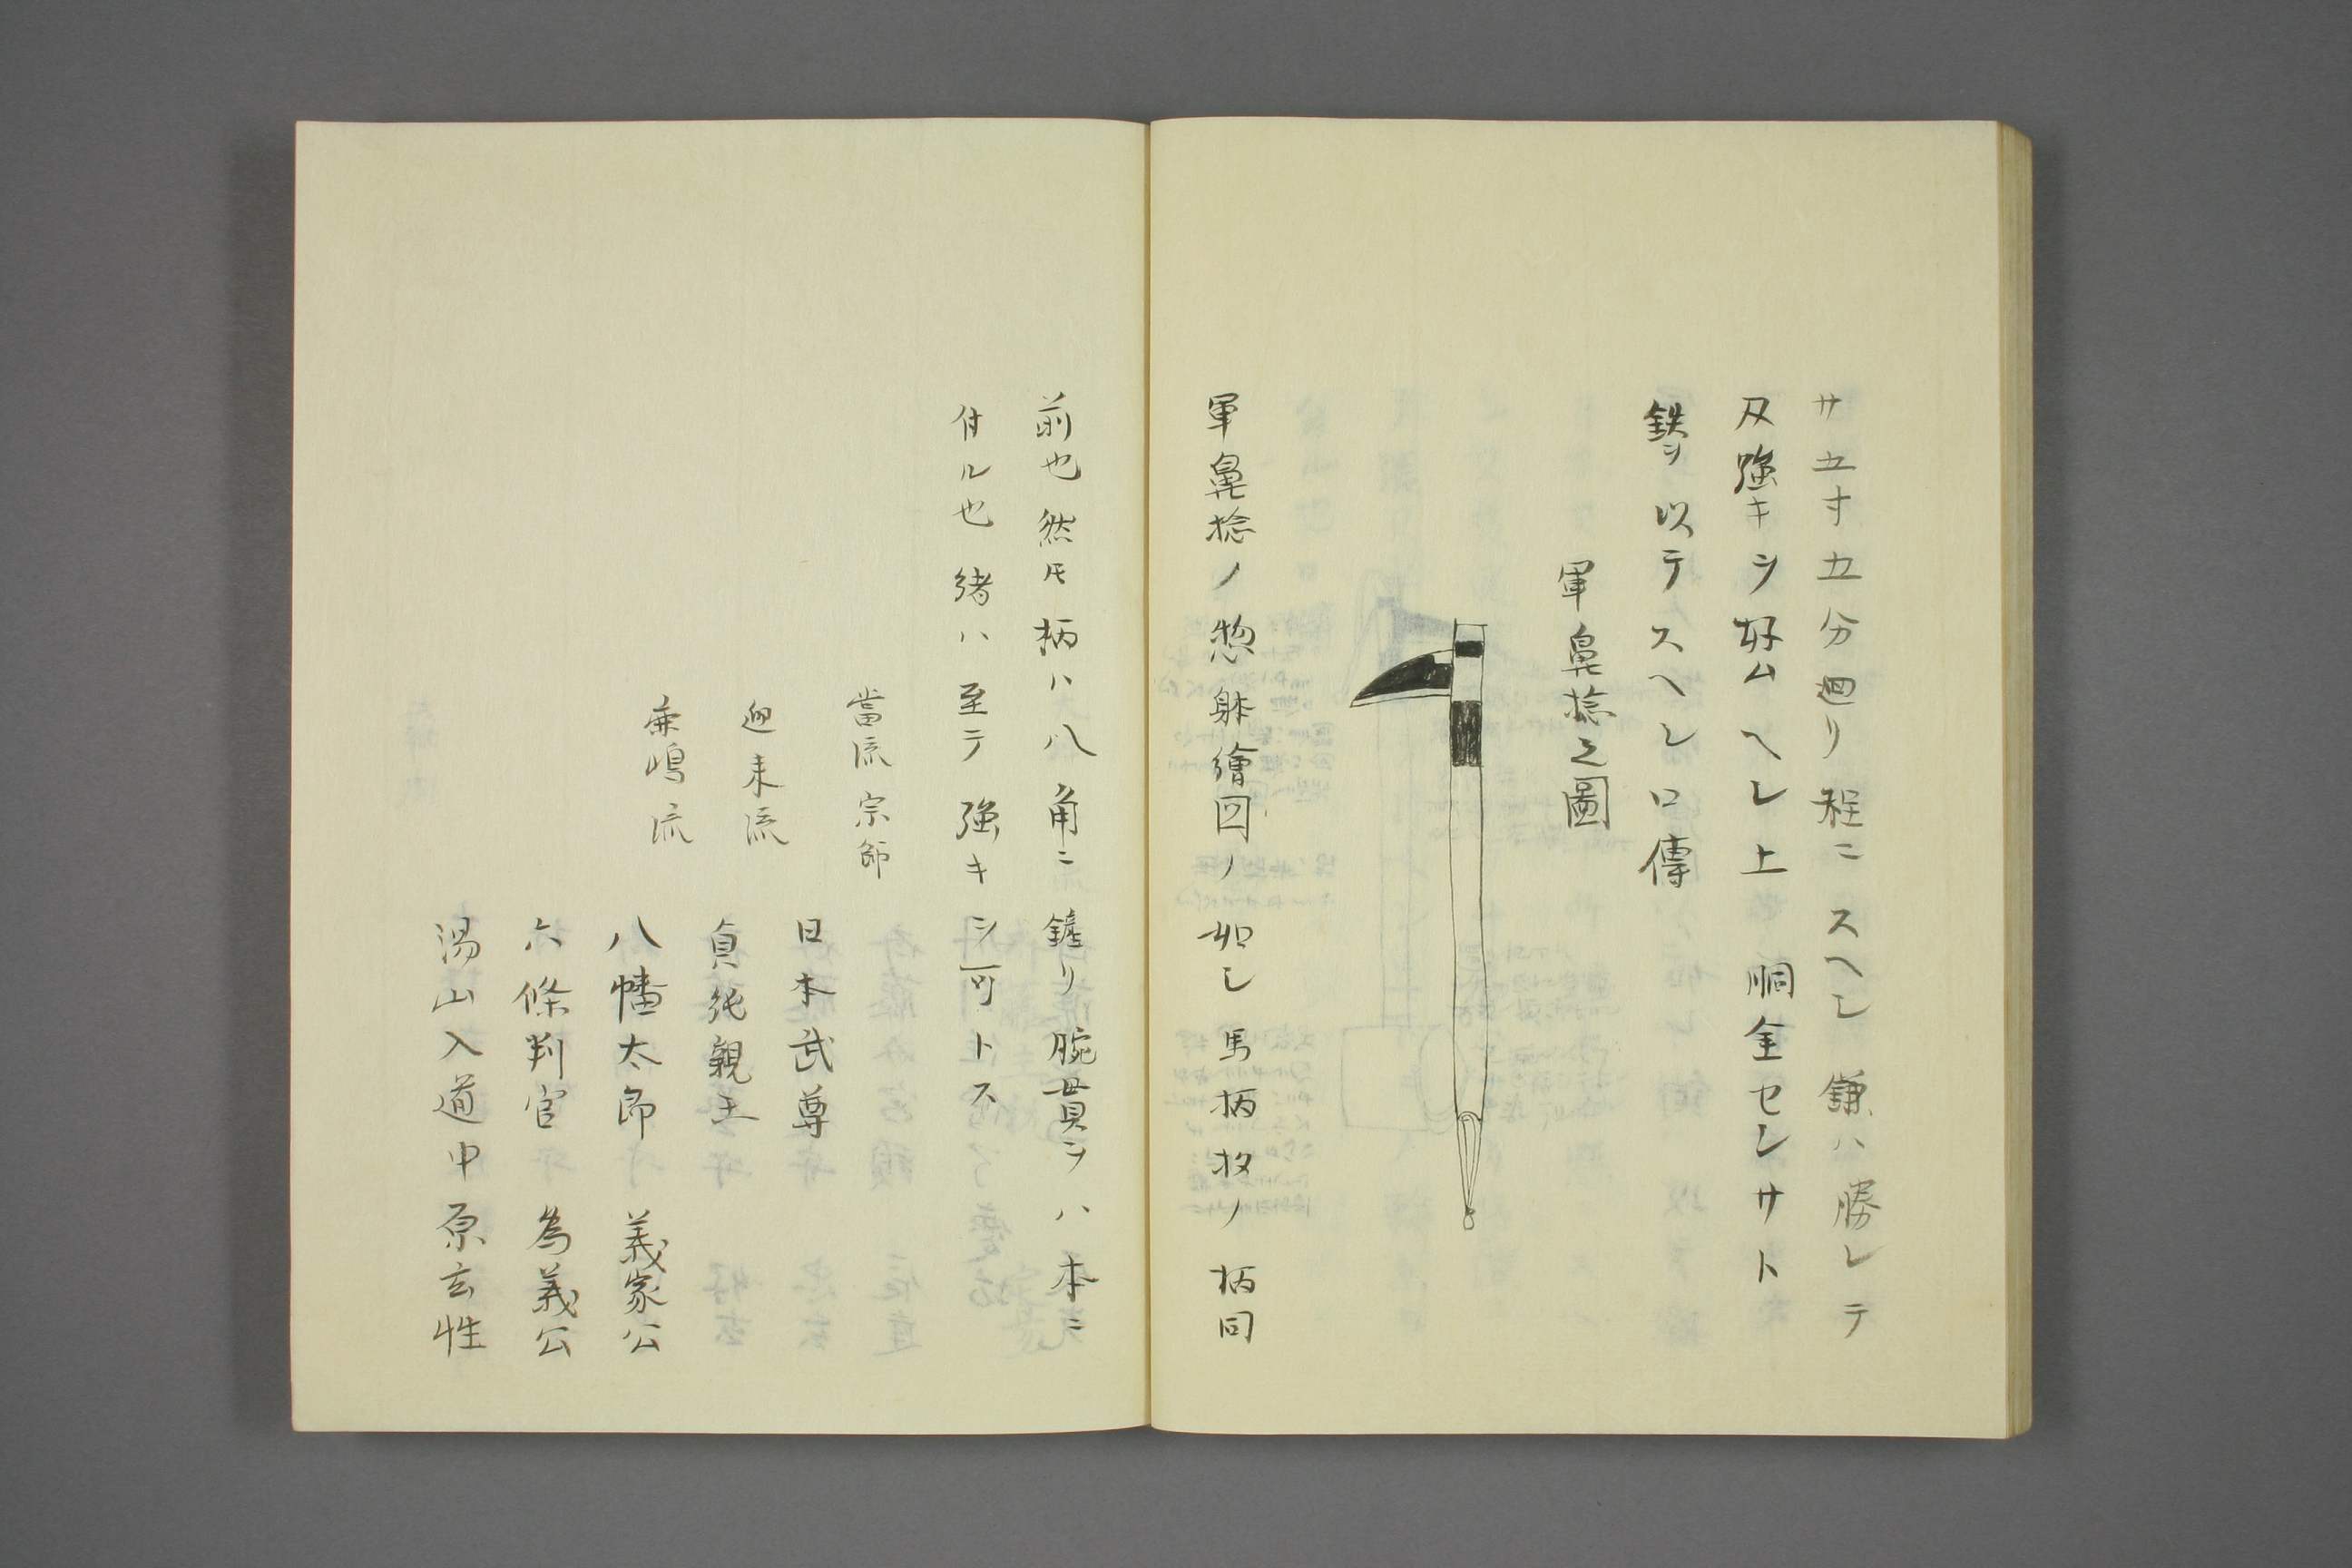 サ五寸五分廻リ程ニスヘシ鎌ハ勝レテ
刄強キヲ好ムヘレ上胴金センサト
鉄ヲ以テスヘシ口傳
軍鼻捻之圖
軍鼻捻ノ惣躰繪図ノ如し馬柄杓ノ柄同
前也然𪜈柄ハ八角ニ鏟リ腕貫ヲハ本ニ
付ル也緒ハ至テ強キヲ可トス
當流宗師
日本武尊
迎来流
貞純親王
兼嶋流
八幡太郎義家公
六條判官為義公
湯山入道中原玄性